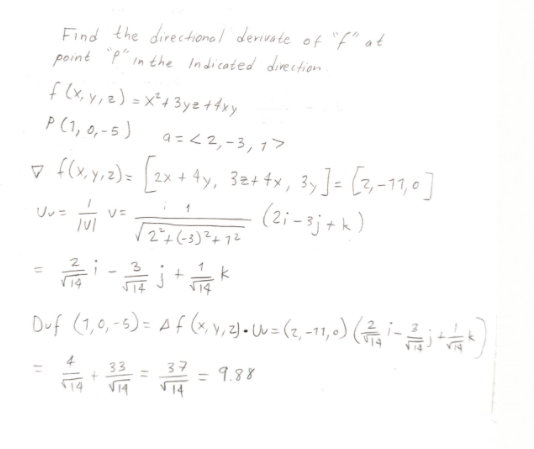 Find the directional derivate of "f" at
point "P" in the Indicated direction
f(x,y,z) = x²+3yz+4xy
P(1,0,-5) a=<2,-3,1>
∇ f(x,y,z)= [2x + 4y, 3z+4x, 3y]= [2,-11,0]
Uv= 1/|V| V= 1/√(2²+(-3)²+1²) (2i-3j+k)
= 2/√14 i - 3/√14 j + 1/√14 k
Duf (1,0,-5)= Δf(x,y,z)•Uv=(2,-11,0)(2/√14 i-3/√14 j+1/√14 k)
= 4/√14 + 33/√14 = 37/√14 = 9.88